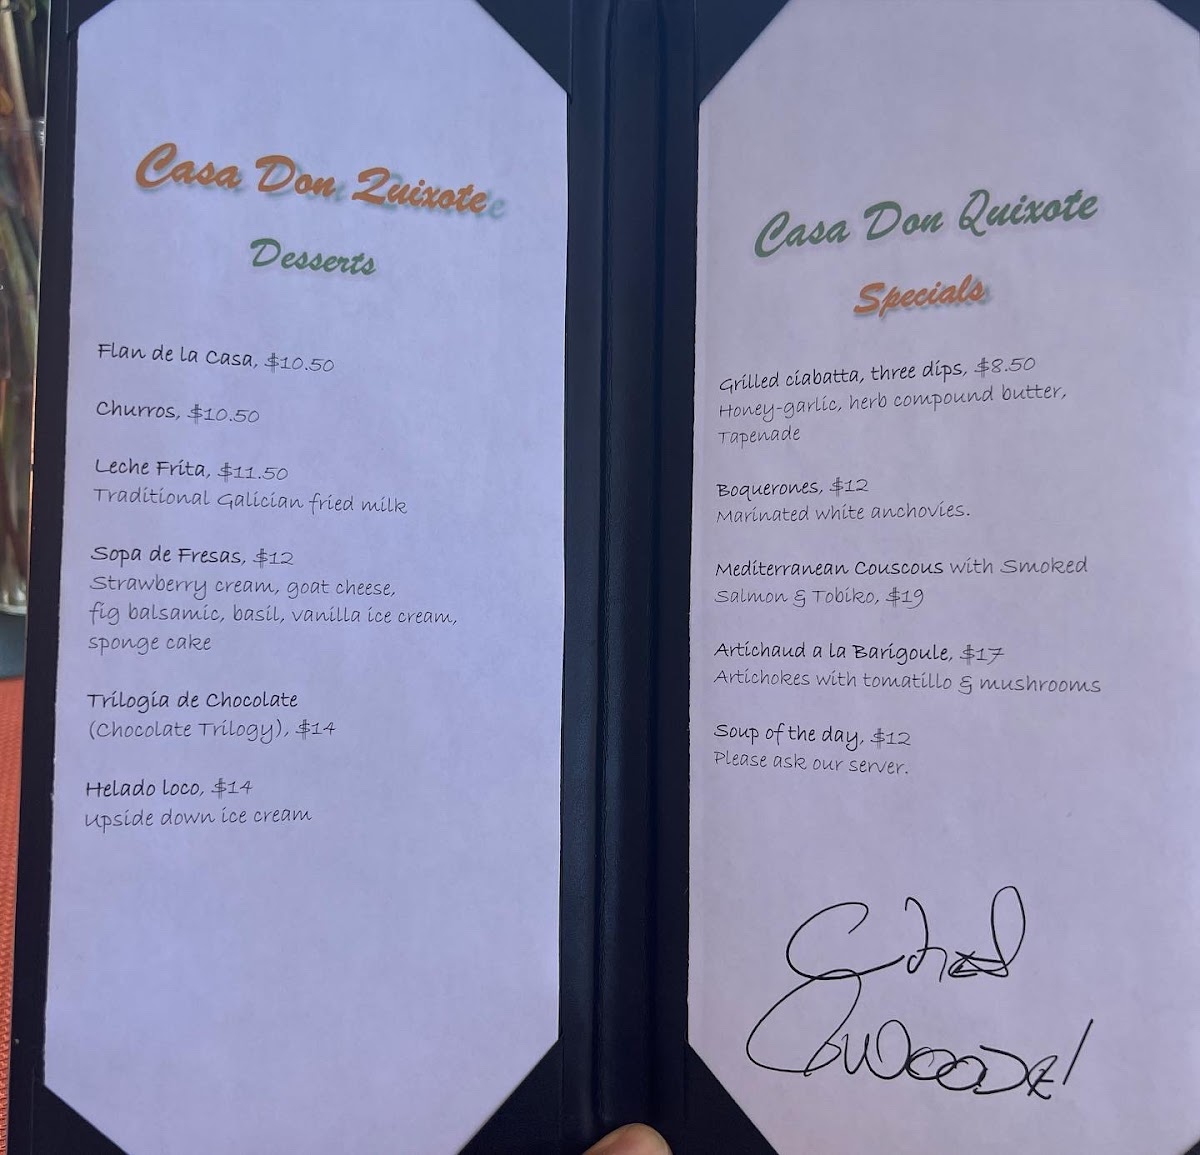 Casa Don Quixote
Desserts
Flan de la Casa, $10.50
Churros, $10.50
Leche Frita, $11.50
Traditional Galician fried milk
Sopa de Fresas, $12
Strawberry cream, goat cheese,
fig balsamic, basil, vanilla ice cream,
sponge cake
Trilogía de Chocolate
(Chocolate Trilogy), $14
Helado loco, $14
Upside down ice cream
Casa Don Quixote
Specials
Grilled ciabatta, three dips, $8.50
Honey-garlic, herb compound butter,
Tapenade
Boquerones, $12
Marinated white anchovies.
Mediterranean Couscous with Smoked
Salmon & Tobiko, $19
Artichaud a la Barigoule, $17
Artichokes with tomatillo & mushrooms
Soup of the day, $12
Please ask our server.